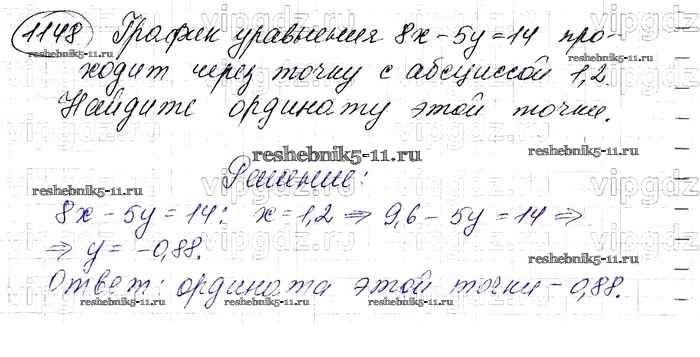 1148 График уравнения 8x - 5y = 14 про-
ходит через точку с абсциссой 1,2.
Найдите ординату этой точки.
reshebnik5-11.ru
Решение:
8x - 5y = 14: x = 1,2 ⇒ 9,6 - 5y = 14 ⇒
⇒ y = -0,88.
Ответ: ордината этой точки -0,88.